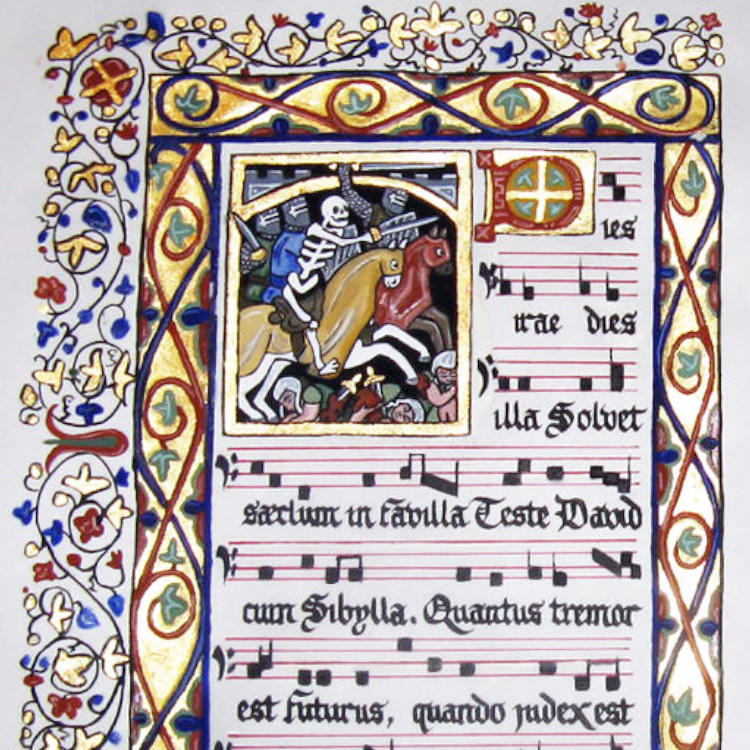 Dies
irae dies
illa Solvet
sæclum in favilla Teste David
cum Sibylla. Quantus tremor
est futurus, quando judex est